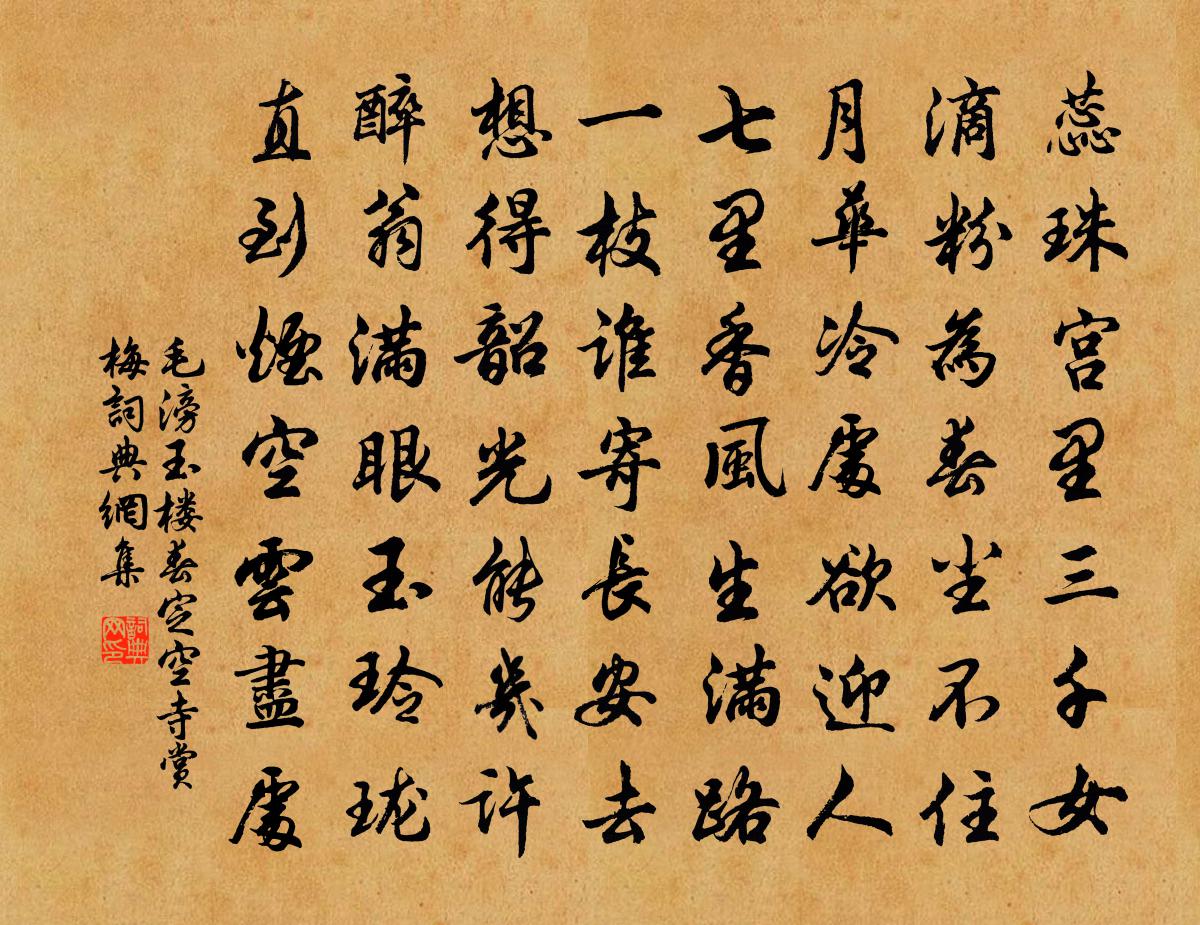 蕊珠宮里三千女
滴粉為春塵不住
月華冷處欲迎人
七里香風生滿路
一枝誰寄長安去
想得韶光能幾許
醉翁滿眼玉玲瓏
直到煙空雲盡處
毛滂玉楼春定空寺赏
梅詞典網集
詞典网印